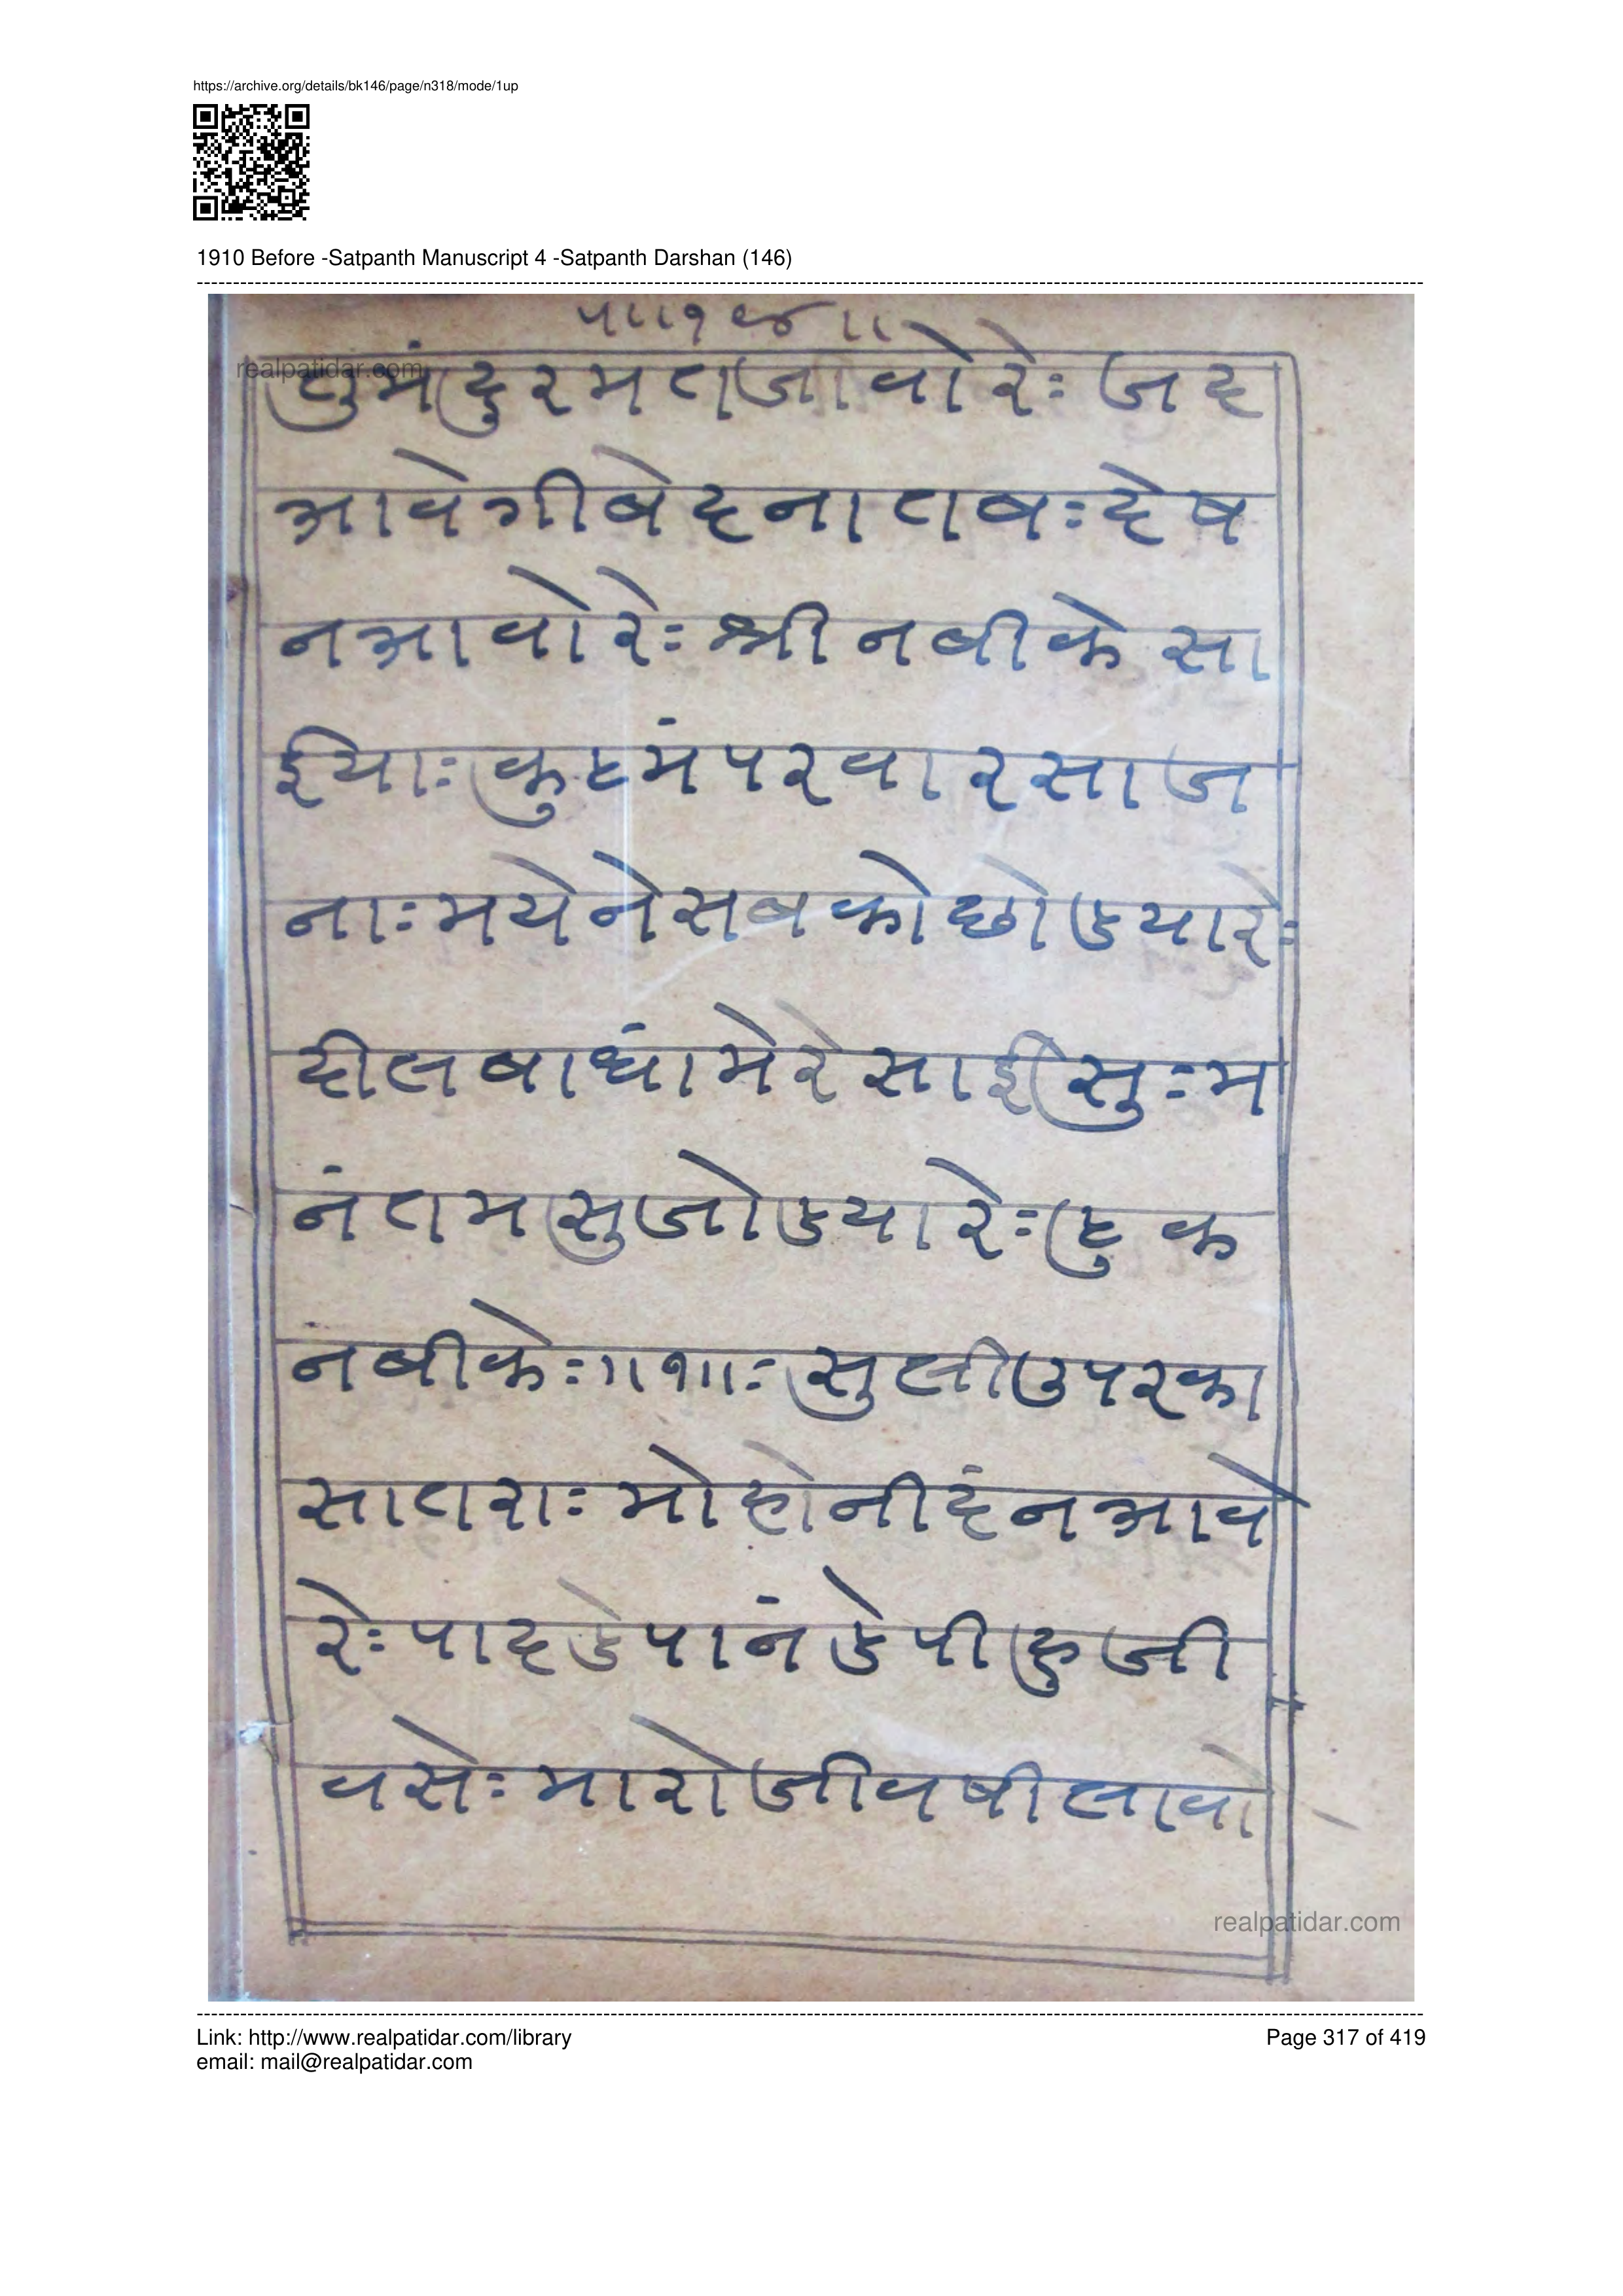 https://archive.org/details/bk146/page/n318/mode/1up
1910 Before -Satpanth Manuscript 4 -Satpanth Darshan (146)
realpatidar.com
तुमंदुरमतजावोरेः जद
आवेगीबेदनातबःदेष
नआवोरेः श्री नबीके सा
ईयाः कुटमंपरवारसाज
नाःमयेनेसबकोछोडयारेः
दीलबाधांमेरेसाईसुःम
नंतमसुजोडयारेः हुक
नबीकेः॥१॥ःसुलीउपरका
सातराःमोहोनीदंनआवे
रेःपादडेपानंडेपीहुजी
वसेःमारोजीवषीलावो
realpatidar.com
Link: http://www.realpatidar.com/library
Page 317 of 419
email: mail@realpatidar.com